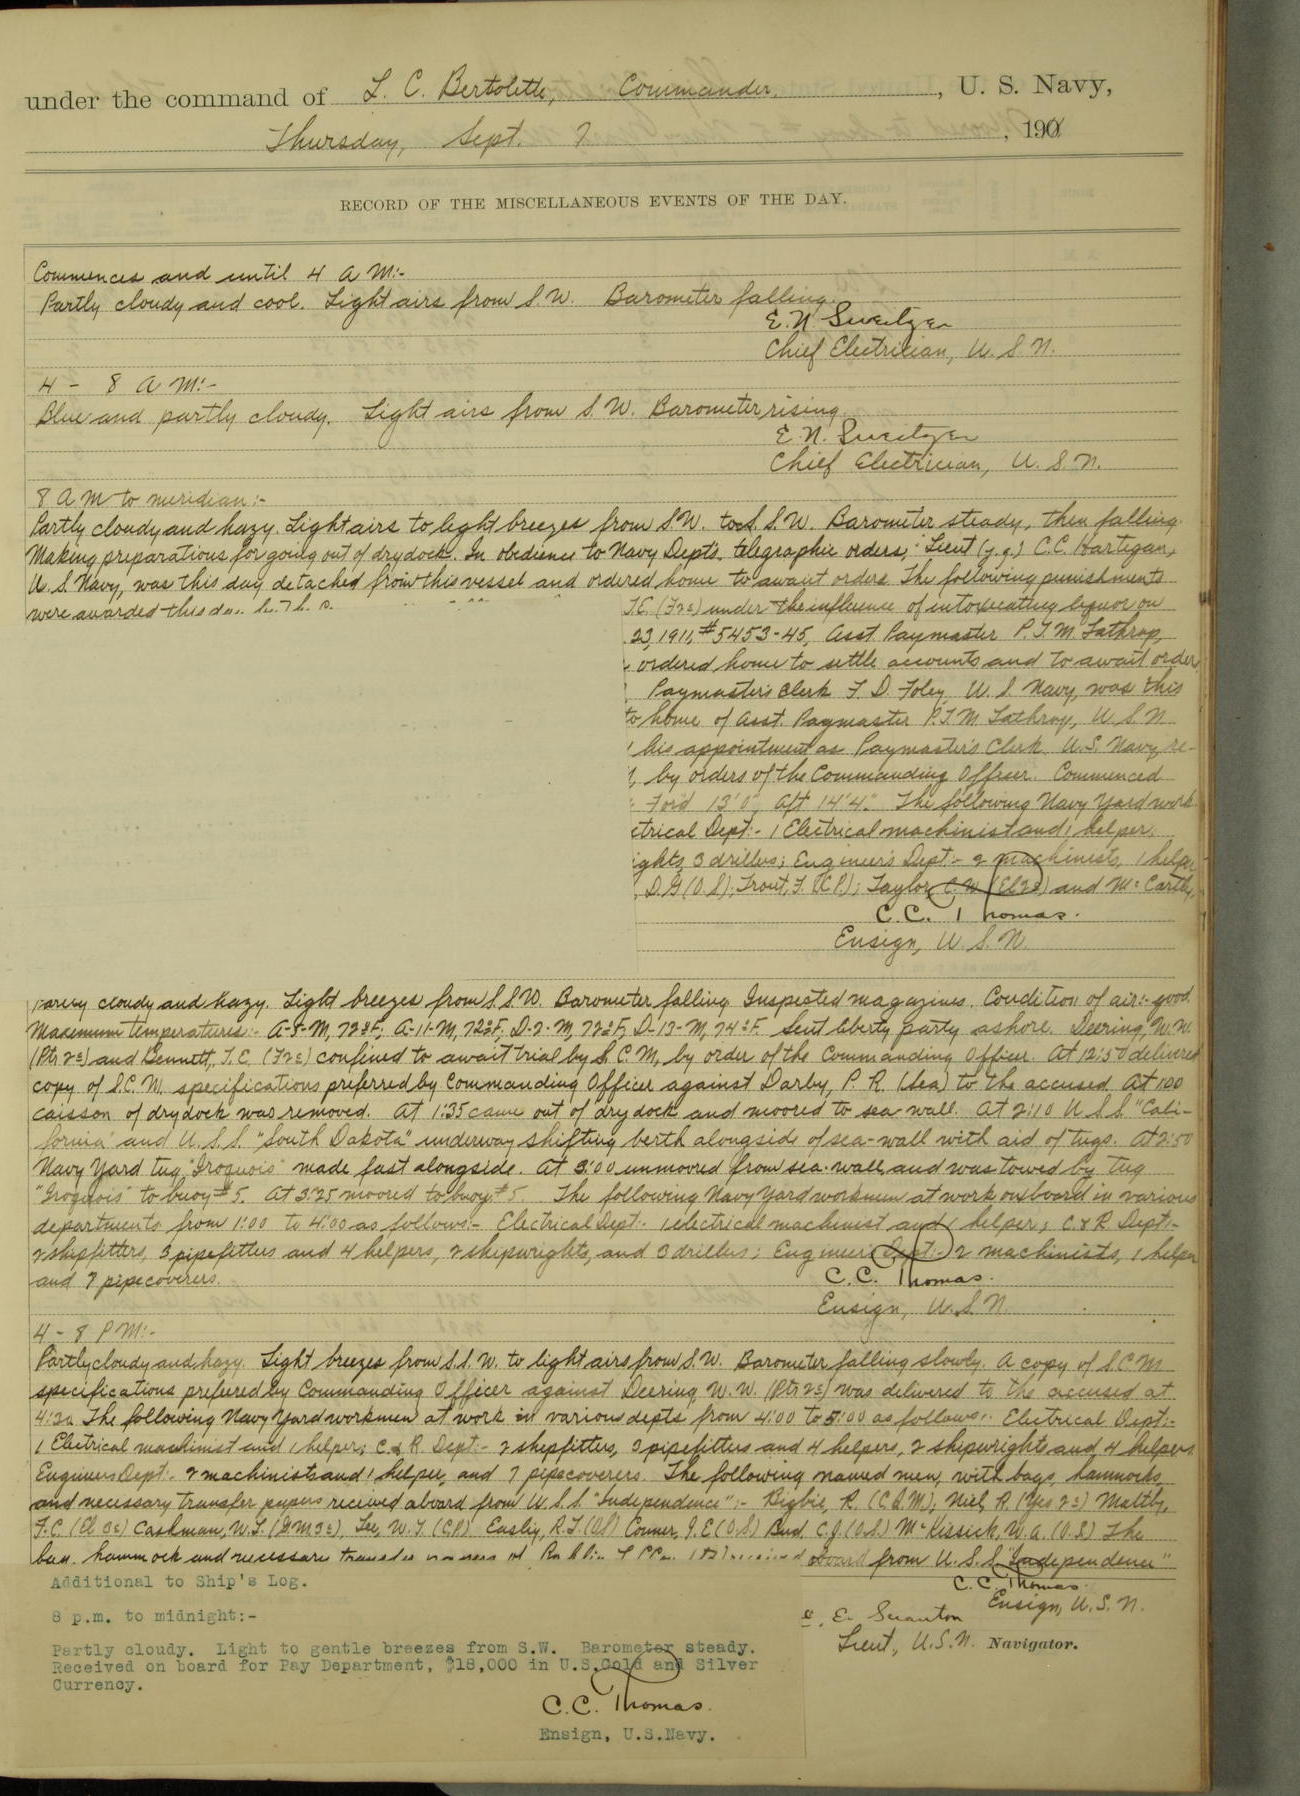 under the command of L. C. Bertolette, Commander, U. S. Navy,
Thursday, Sept. 7, 190
RECORD OF THE MISCELLANEOUS EVENTS OF THE DAY.
Commences and until 4 A M:-
Partly cloudy and cool. Light airs from S.W. Barometer falling.
E. N Sweitzer
Chief Electrician, U. S N.
4 - 8 A M:-
Blue and partly cloudy. Light airs from S.W. Barometer rising.
E. N. Sweitzer
Chief Electrician, U. S. N.
8 A M to meridian:-
Partly cloudy and hazy. Light airs to light breezes from S.W. to S.S.W. Barometer steady, then falling.
Making preparations for going out of drydock. In obedience to Navy Dept's. telegraphic orders, Lieut (j.g.) C.C. Hartigan,
U. S. Navy, was this day detached from this vessel and ordered home to await orders. The following punishments
were awarded this
T.C. (F2c) under the influence of intoxicating liquor on
23, 1911, #5453-45, Asst. Paymaster P.T.M. Lathrop,
ordered home to settle accounts and to await orders
Paymaster's Clerk F. D. Foley U. S. Navy, was this
to home of Asst. Paymaster P.T.M. Lathrop, U. S N.
his appointment as Paymaster's Clerk U.S. Navy, re-
by orders of the Commanding Officer. Commenced
For'd 13'0", Aft 14'4". The following Navy Yard work
ctrical Dept:- 1 Electrical machinist and 1 helper,
ights, 3 drillers; Engineer's Dept:- 2 machinists, 1 helper
D.G (O.S); Trout, F. (C.P.); Taylor, C.W. (El2c) and McCarthy,
C.C. Thomas.
Ensign, U. S. N.
cloudy and hazy. Light breezes from S.S.W. Barometer falling. Inspected magazines. Condition of air:- good.
Maximum temperatures:- A-8-M, 72°F; A-11-M, 72°F, D-2-M, 72°F, D-13-M, 74°F. Sent liberty party ashore. Deering, W.W.
(Ptr 2c) and Bennett, T.C. (F2c) confined to await trial by S.C.M, by order of the Commanding Officer. At 12:57 delivered
copy of S.C.M. specifications preferred by Commanding Officer against Darby, P. R. (Sea) to the accused. At 1:00
caisson of drydock was removed. At 1:35 came out of drydock and moored to sea-wall. At 2:10 U.S.S. "Cali-
fornia" and U.S.S. "South Dakota" underway shifting berth alongside of sea-wall with aid of tugs. At 2:50
Navy Yard tug "Iroquois" made fast alongside. At 3:00 unmoored from sea-wall and was towed by tug
"Iroquois" to buoy #5. At 3:25 moored to buoy #5. The following Navy Yard workmen at work onboard in various
departments from 1:00 to 4:00 as follows:- Electrical Dept:- 1 electrical machinist and 1 helper; C. & R. Dept:-
2 shipfitters, 3 pipefitters and 4 helpers, 2 shipwrights, and 3 drillers; Engineers Dept:- 2 machinists, 1 helper
and 7 pipecoverers.
C.C. Thomas.
Ensign, U.S.N.
4 - 8 P M:-
Partly cloudy and hazy. Light breezes from S.S.W. to light airs from S.W. Barometer falling slowly. A copy of S.C.M
specifications preferred by Commanding Officer against Deering, W. W. (Ptr 2c) was delivered to the accused at
The following Navy Yard workmen at work in various depts from 4:00 to 5:00 as follows:- Electrical Dept:-
1 Electrical machinist and 1 helper; C & R. Dept:- 2 shipfitters, 3 pipefitters and 4 helpers, 2 shipwrights and 4 helpers
Engineers Dept:- 2 machinists and 1 helper, and 7 pipecoverers. The following named men, with bags, hammocks,
and necessary transfer papers received aboard from U.S.S. "Independence":- Bigbie, R. (C.G.M); Niel, R. (Yeo 2c) Maltby,
F.C. (El 3c) Cashman, W.T. (G.M 3c), Lee, W.T. (C.P.) Easley, R.T. (OS) Conner, J.E (O.S) C.J. (O.S.) McKissick, W.A. (O.S) The
bag, hammock and necessary transfer papers of received aboard from U.S.S. "Independence"
C. C. Thomas
Ensign, U.S.N.
Additional to Ship's Log.
8 p.m. to midnight:-
Partly cloudy. Light to gentle breezes from S.W. Barometer steady.
Received on board for Pay Department, $18,000 in U.S.Gold and Silver
Currency.
C.C. Thomas.
Ensign, U.S.Navy.
Lieut, U.S.N. Navigator.